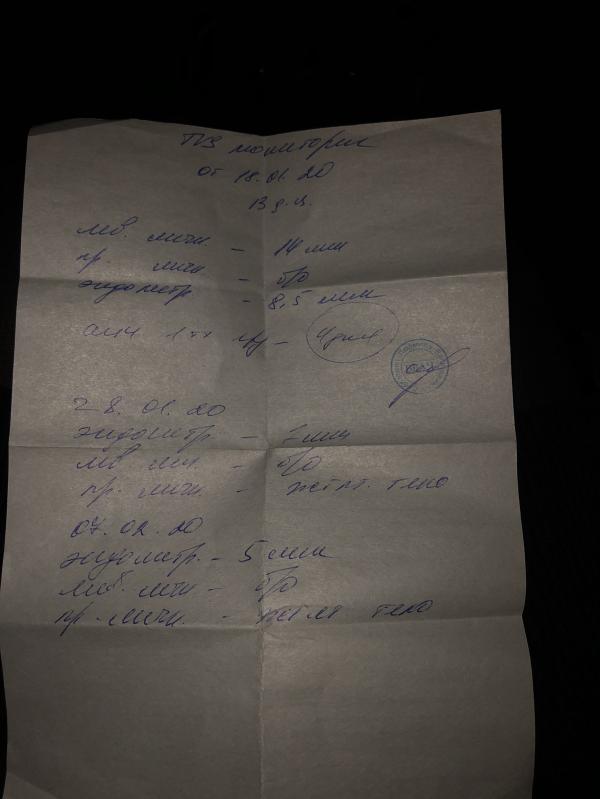 ТВЗ мониторин
от 18.01.20
13 д.ц.
лев. яичн. - 14 мм
пр. яичн - б/о
эндометр - 8,5 мм
28.01.20
эндометр. - 7 мм
лев. яич. - б/о
пр. яичн. - желт. тело
07.02.20
эндометр. - 5 мм
лев. яичн - б/о
пр. яичн. - желт тело